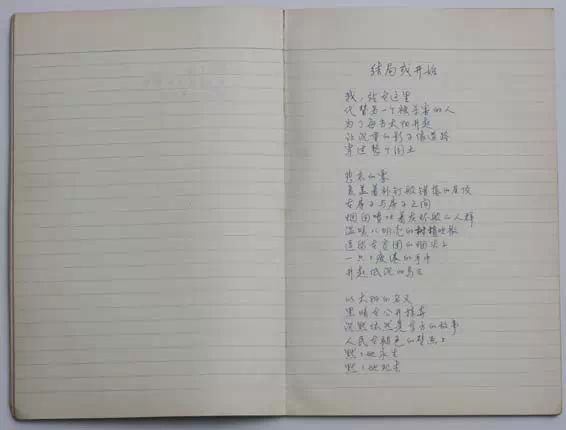 结局或开始
我，站在这里
代替另一个被杀害的人
为了每当太阳升起
让沉重的影子像道路
穿过整个国土
悲哀的雾
覆盖着补钉般错落的屋顶
在房子与房子之间
烟囱喷吐着灰烬般的人群
温暖从明亮的树梢吹散
逗留在贫困的烟头上
一只々疲倦的手中
升起低沉的乌云
以太阳的名义
黑暗在公开掠夺
沉默依然是东方的故事
人民在褪色的壁画上
默々地永生
默々地死去